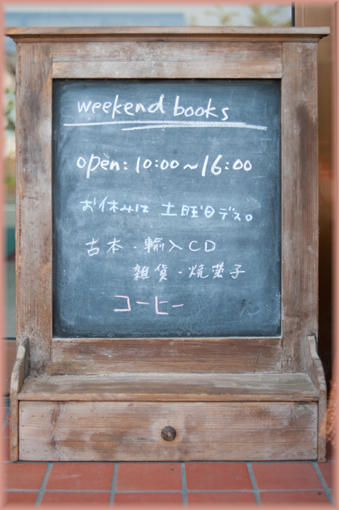 weekend books
open: 10:00~16:00
お休みは 土曜日デス。
古本・輸入CD
雑貨・焼菓子
コーヒー